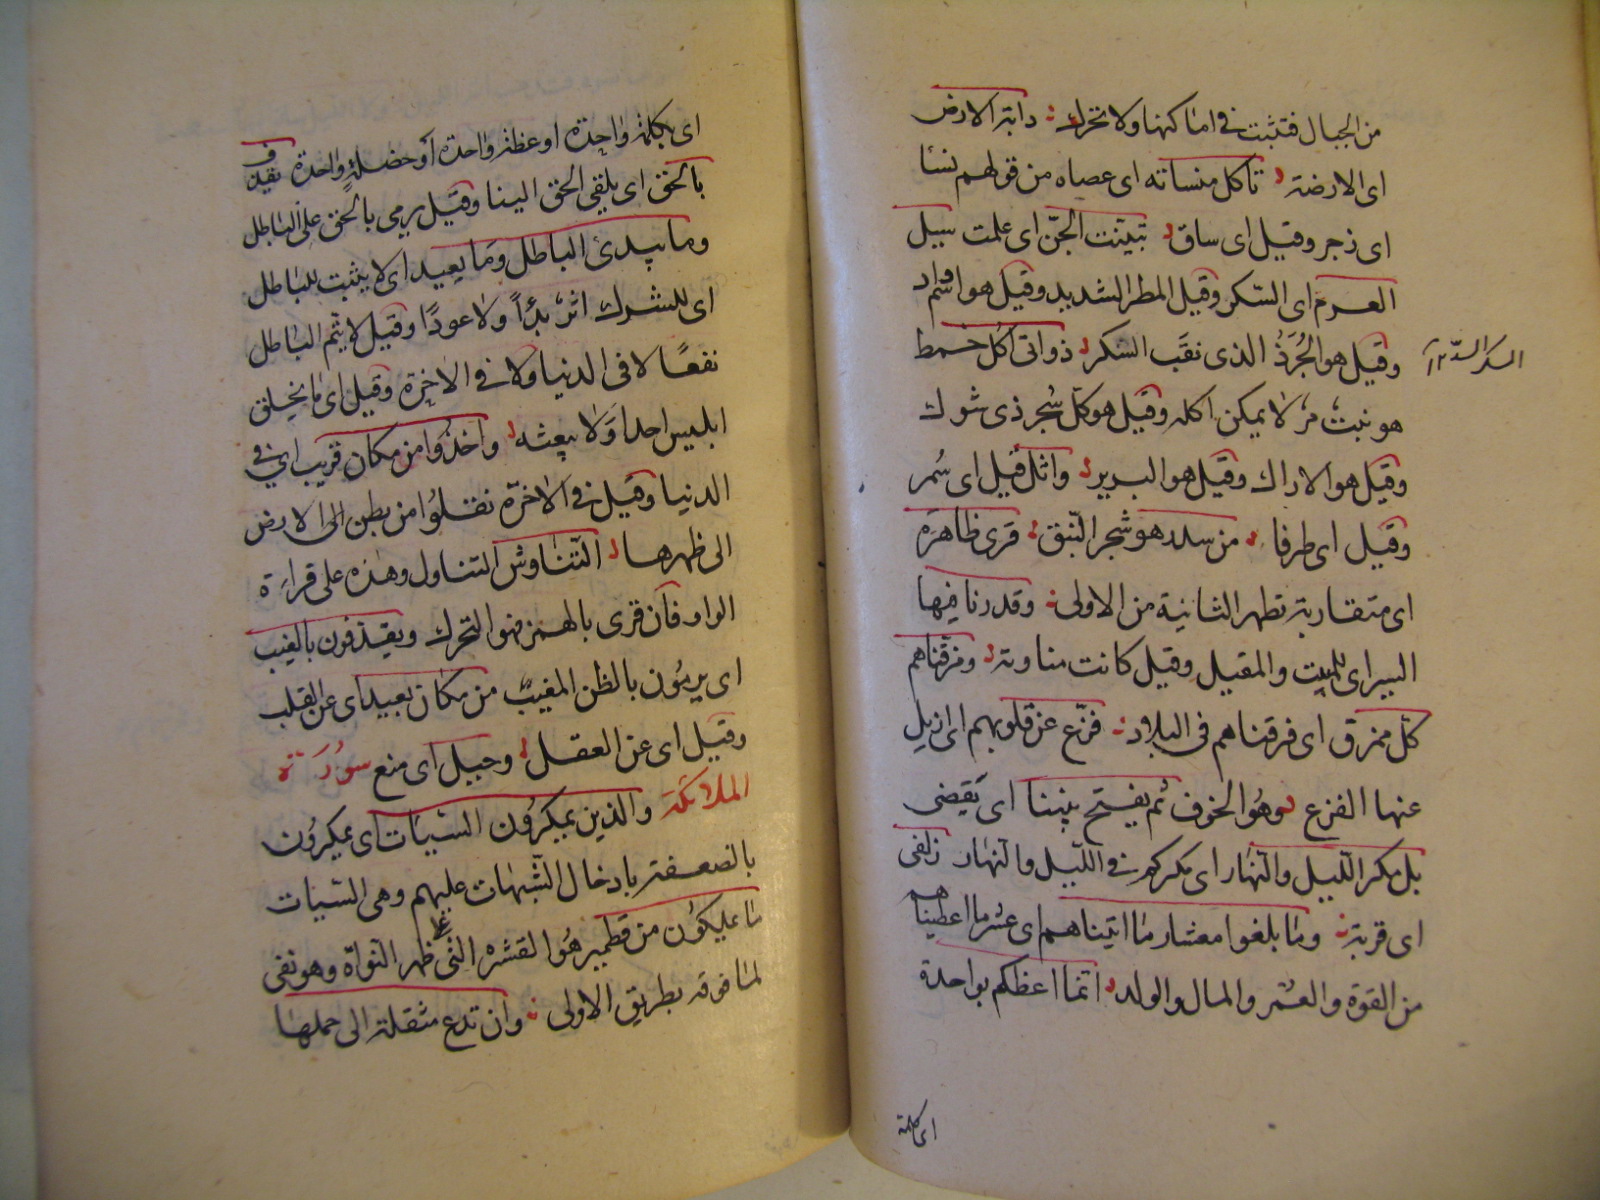 من الجبال فتثبت في اماكنها ولا تحرك دابة الارض
اى الارضة تاكل منساته اى عصاه من قولهم نسئا
اى زجر وقيل اى ساق تبينت الجن اى علمت سيل
العرم اى السكر وقيل المطر الشديد وقيل هو اسم واد
وقيل هو الجُرَذُ الذى نقَب السكر ذواتى اكل خمط
السكر السدّ
هو نبت مر لا يمكن اكله وقيل هو كل شجر ذى شوك
وقيل هو الاراك وقيل هو البرير واثل قيل اى سُمر
وقيل اى طرفا من سدر هو شجر النبق قرى ظاهرة
اى متقاربة تظهر الثانية من الاولى وقدرنا فيها
السير اى للمبيت والمقيل وقيل كانت مناوبة ومزقناهم
كل ممزق اى فرقناهم فى البلاد فزع عن قلوبهم اى ازيل
عنها الفزع وهو الخوف ثم يفتح بيننا اى يقضى
بل مكر الليل والنهار اى مكركم في الليل والنهار زلفى
اى قربة وما بلغوا معشار ما اتيناهم اى عشر ما اعطيناهم
من القوة والعمر والمال والولد انما اعظكم بواحدة
اى كلمة
اى بكلمة واحدة او عظة واحدة او خصلة واحدة يقذف
بالحق اى يلقى الحق الينا وقيل يرمى بالحق على الباطل
وما يبدئ الباطل وما يعيد اى لا يثبت للباطل
اى للشرك اثر بدًا ولا عودًا وقيل لا يتم الباطل
نفعًا لا فى الدنيا ولا في الاخرة وقيل اى ما يخلق
ابليس احدا ولا يبعثه واخذوا من مكان قريب اى في
الدنيا وقيل في الاخرة نقلوا من بطن الى الارض
الى ظهرها التناوش التناول وهذه على قراءة
الواو فان قرى بالهمز فهو التحرك ويقذفون بالغيب
اى يرمون بالظن المغيب من مكان بعيد اى عن القلب
وقيل اى عن العقل وحيل اى منع سورة
الملائكة والذين يمكرون السيات اى يمكرون
بالضعفة بادخال الشبهات عليهم وهى السيات
ما يملكون من قطمير هو القشرة التى على ظهر النواة وهو نفى
لما فوقه بطريق الاولى وان تدع مثقلة الى حملها